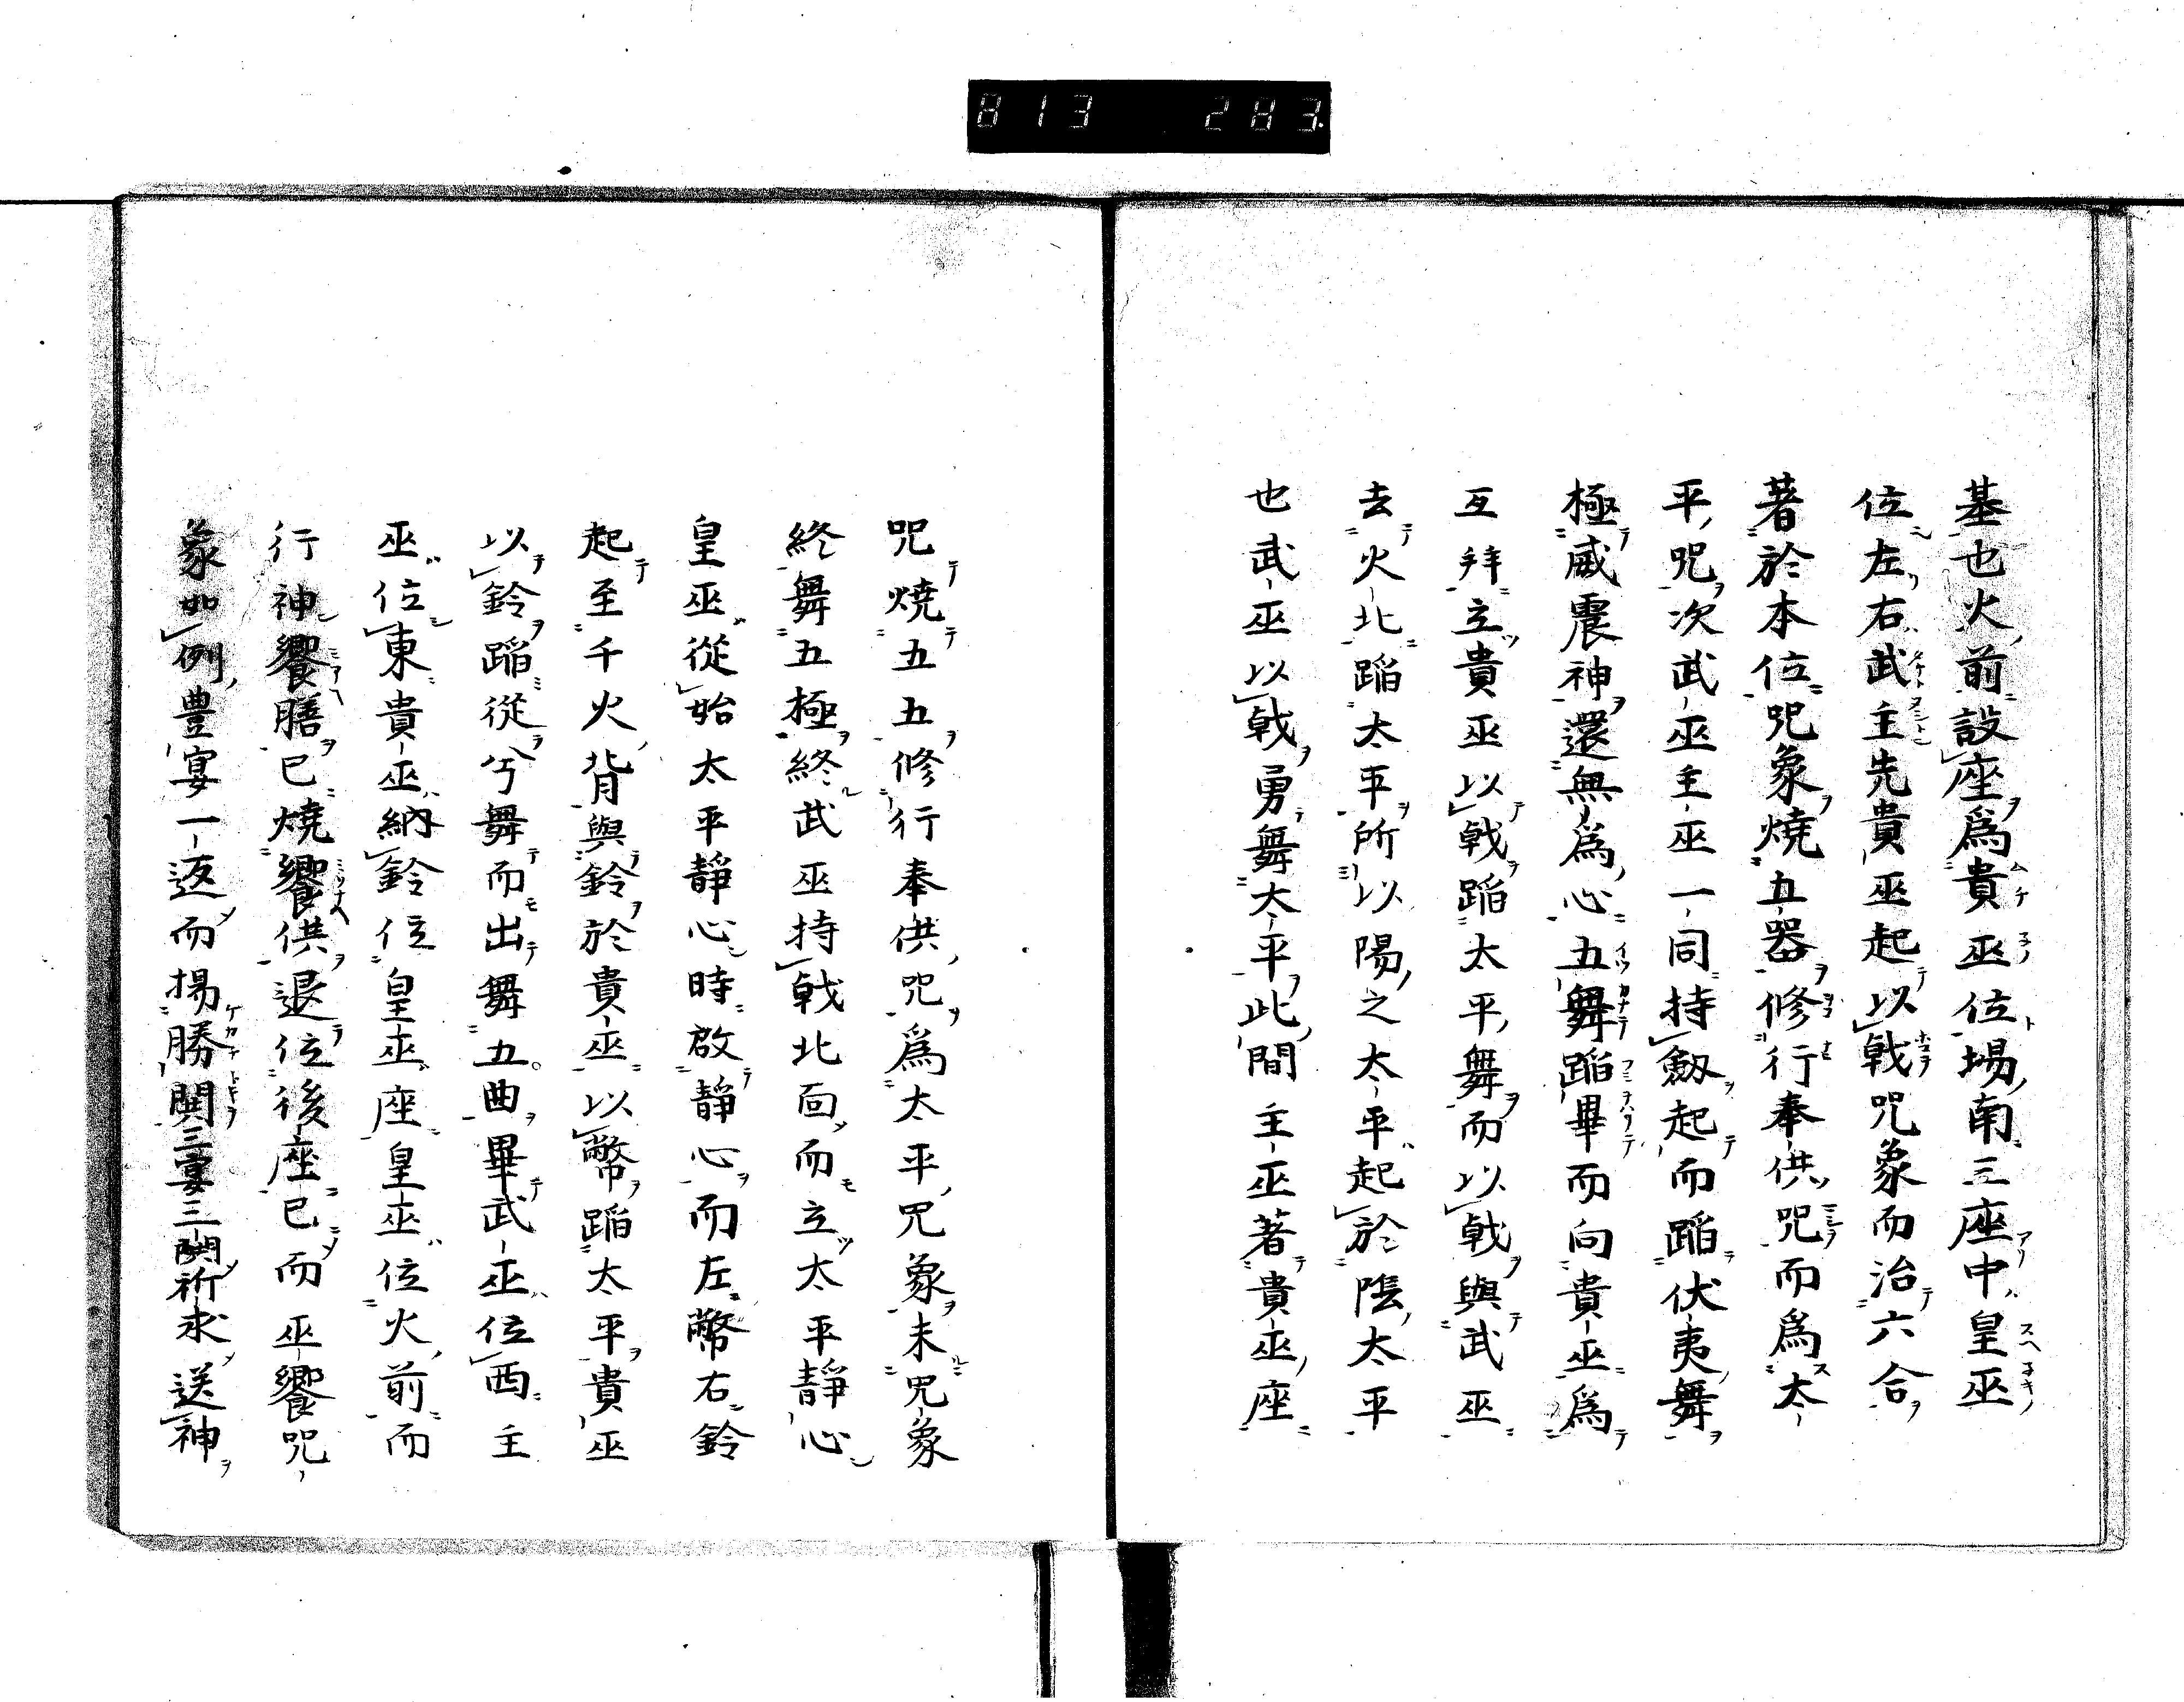 813 283.
基也火前設座爲貴巫位場南三座中皇巫
位左右武主先貴巫起以戟咒象而治六合
著於本位咒象燒五器修行奉供咒而爲太
平咒次武巫主巫一同持劔起而蹈伏夷舞
極威震神還無爲心五舞蹈畢而向貴巫爲
互拜立貴巫以戟蹈太平舞而以戟與武巫
去火北蹈太平所以陽之太平起於陰太平
也武巫以戟勇舞太平此間主巫著貴巫座
咒燒五五修行奉供咒爲太平咒象未咒象
終舞五極終武巫持戟北面而立太平靜心
皇巫從始太平靜心時啟靜心而左幣右鈴
起至千火背與鈴於貴巫以幣蹈太平貴巫
以鈴蹈從兮舞而出舞五曲畢武巫位西主
巫位東貴巫納鈴位皇巫座皇巫位火前而
行神饗膳已燒饗供退位後座已而巫饗咒
象如例豊宴一返而揚勝閧三宴三閧祈求送神